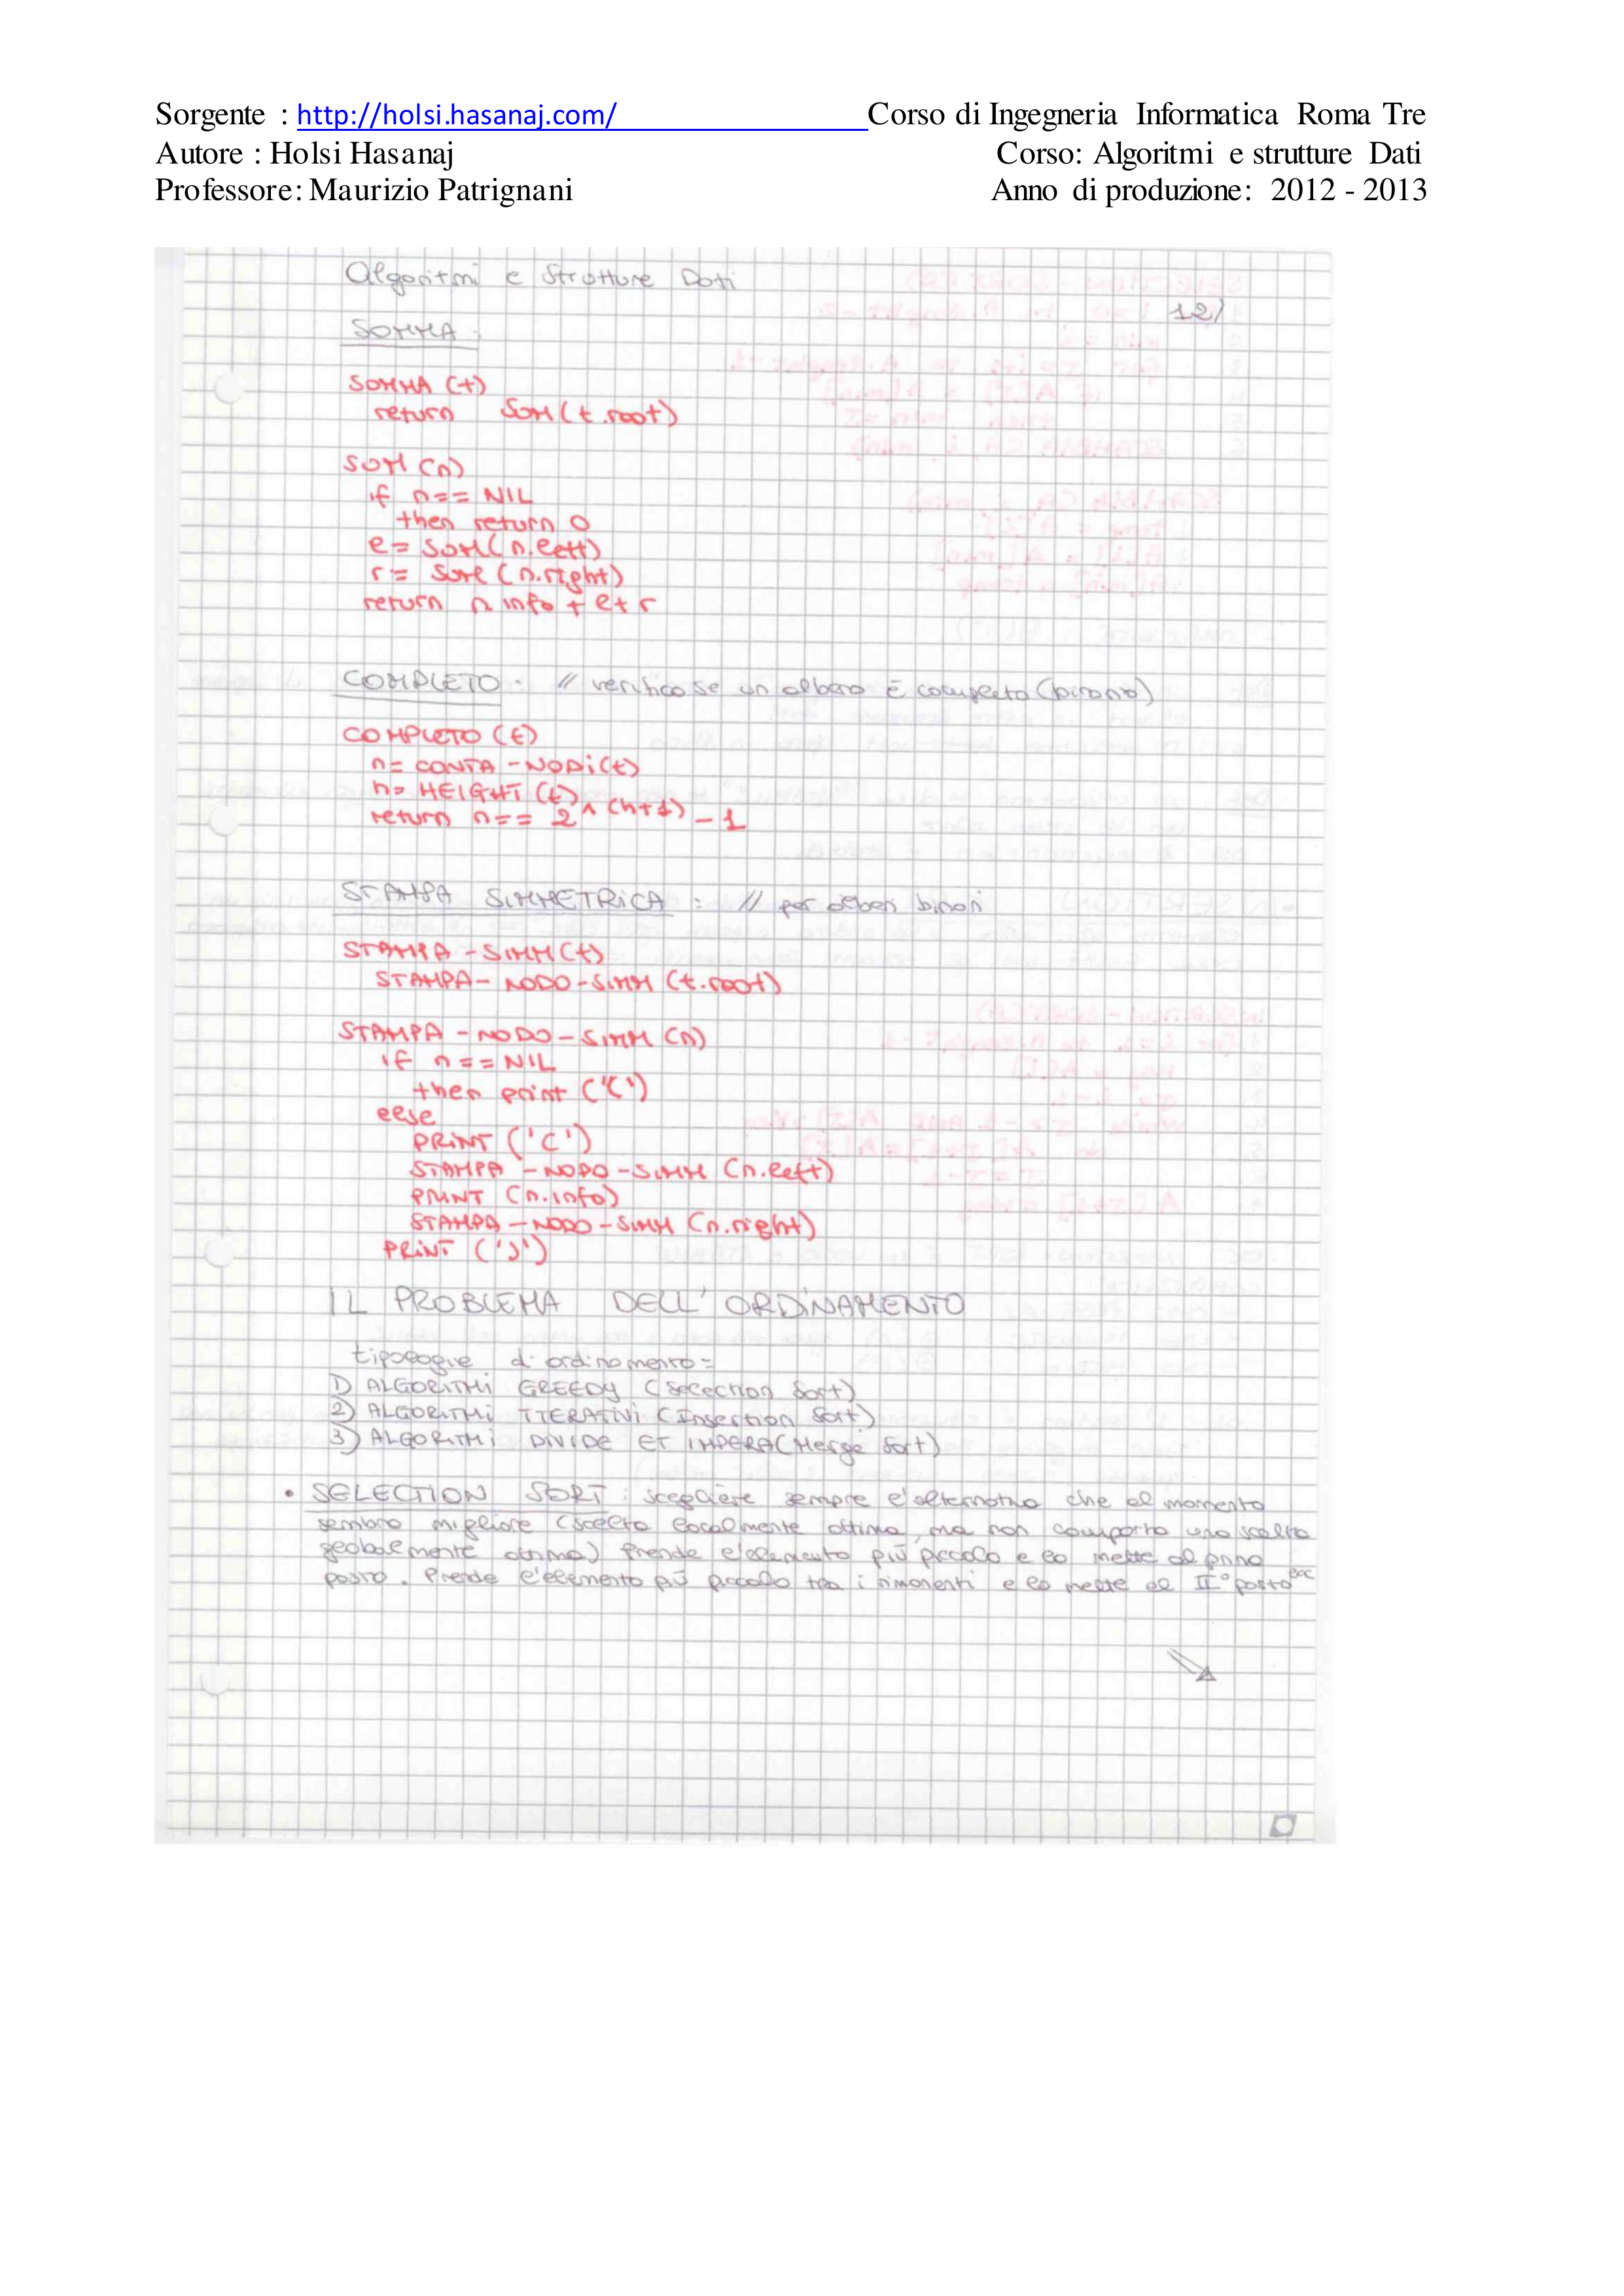 Sorgente : http://holsi.hasanaj.com/ Corso di Ingegneria Informatica Roma Tre
Autore : Holsi Hasanaj Corso: Algoritmi e strutture Dati
Professore: Maurizio Patrignani Anno di produzione: 2012 - 2013
Algoritmi e Strutture Dati
12/
SOMMA :
SOMMA (t)
return SOM (t.root)
SOM (n)
if n == NIL
then return 0
l = SOM (n.left)
r = SOM (n.right)
return n info + l + r
COMPLETO : // verifico se un albero è completo (binario)
COMPLETO (t)
n = CONTA - NODi (t)
h = HEIGHT (t)
return n == 2 ^ (h+1) - 1
STAMPA SIMMETRICA : // per alberi binari
STAMPA - SIMM (t)
STAMPA - NODO - SIMM (t.root)
STAMPA - NODO - SIMM (n)
if n == NIL
then print
else
PRINT ('(')
STAMPA - NODO - SIMM (n.left)
PRINT (n.info)
STAMPA - NODO - SIMM (n.right)
PRINT (')')
IL PROBLEMA DELL' ORDINAMENTO
tipologie di ordinamento =
1) ALGORITMi GREEDY (Selection Sort)
2) ALGORITMi ITERATIVI (Insertion Sort)
3) ALGORITMi DIVIDE ET IMPERA (Merge Sort)
• SELECTION SORT : scegliere sempre l'alternativa che al momento
sembra migliore (scelta localmente ottima, ma non comporta una scelta
globalmente ottima) Prende l'elemento più piccolo e lo mette al primo
posto. Prende l'elemento più piccolo tra i rimanenti e lo mette al II° posto ecc